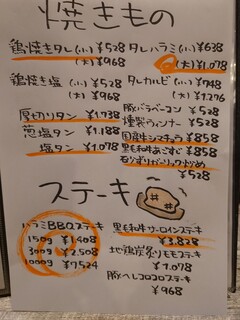 焼きもの
鶏焼きタレ(小) ¥528
(大) ¥968
鶏焼き塩 (小) ¥528
(大) ¥968
厚切りタン ¥1.738
葱塩タン ¥1.188
塩タン ¥1.078
タレハラミ(小) ¥638
(大) ¥1.078
タレカルビ (小) ¥748
(大) ¥1.276
豚バラベーコン ¥528
燻製ウィンナー ¥528
国産牛シマチョウ ¥858
黒毛和牛あごすじ ¥858
石づきガーリック炒め
¥528
ステーキ
ハラミBBQステーキ
150g ¥1.408
300g ¥2.508
1000g ¥7524
黒毛和牛サーロインステーキ
¥3.828
地鶏炭炙りモモステーキ
¥1.078
豚ヘレコロコロステーキ
¥968